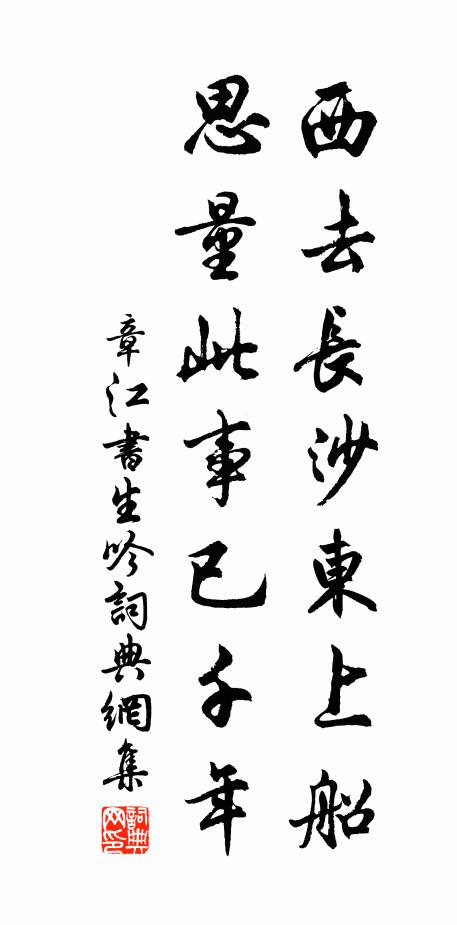 西去長沙東上船
思量此事已千年
章江書生吟詞典網集
詞典网印